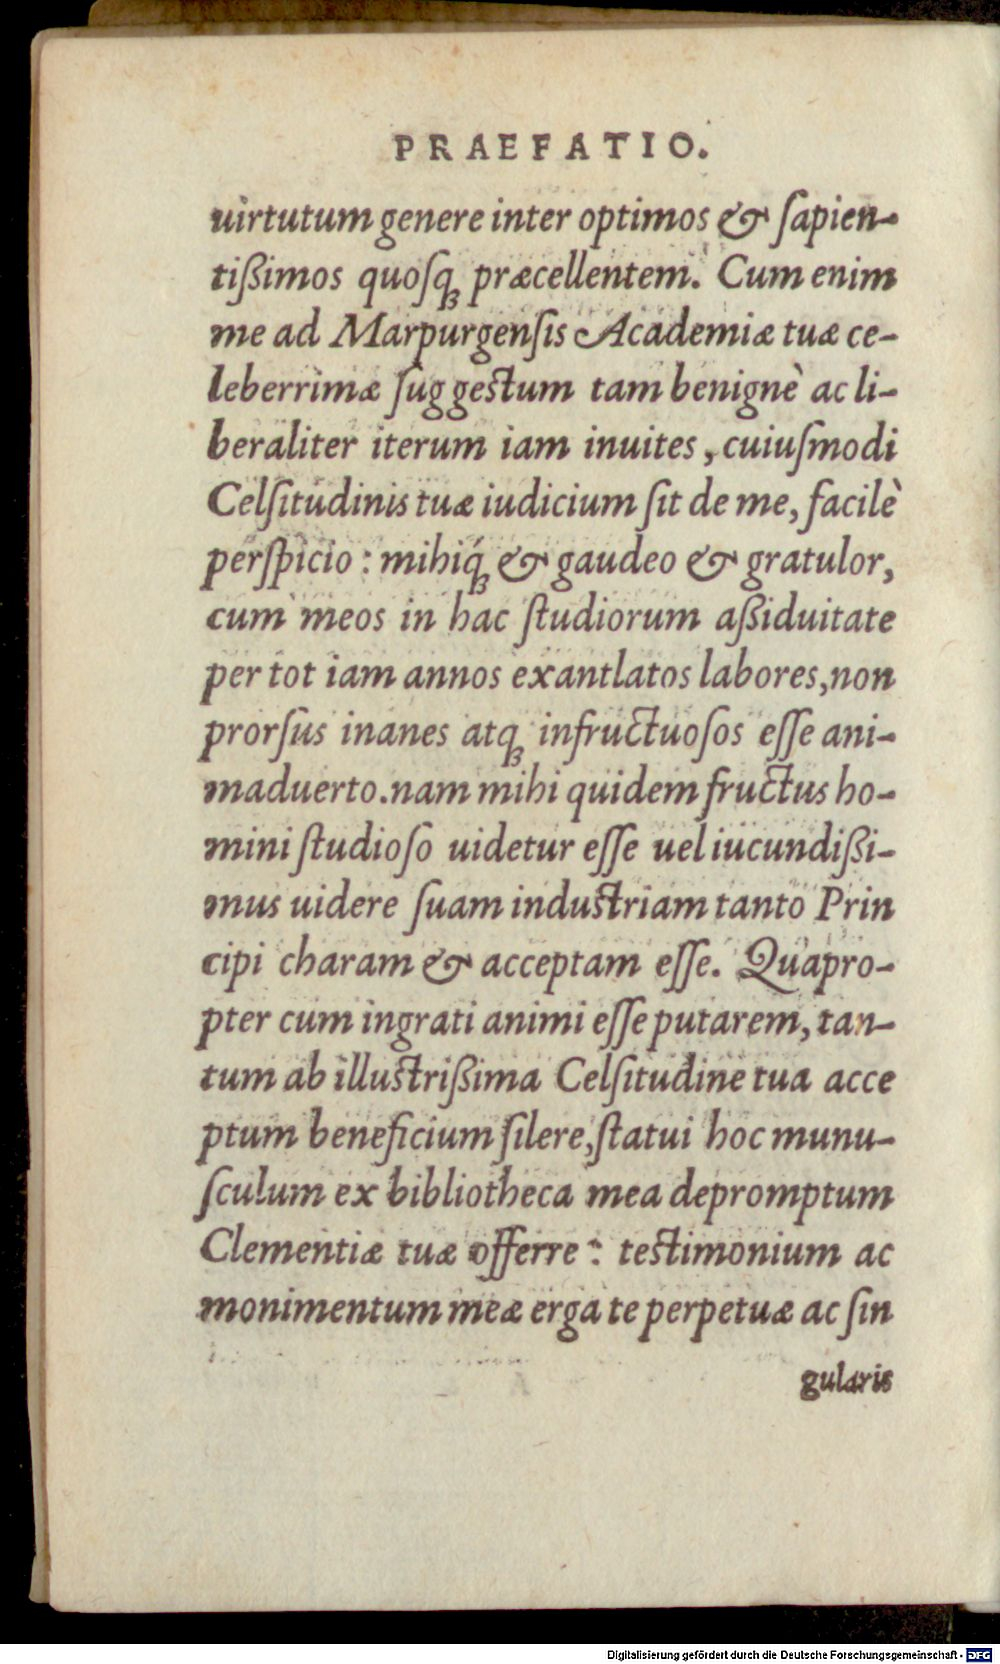 PRAEFATIO.
uirtutum genere inter optimos & ſapien-
tißimos quoſq; præcellentem. Cum enim
me ad Marpurgenſis Academiæ tuæ ce-
leberrimæ ſuggestum tam benignè ac li-
beraliter iterum iam inuites, cuiuſmodi
Celſitudinis tuæ iudicium ſit de me, facilè
perſpicio: mihiq́; & gaudeo & gratulor,
cum meos in hac ſtudiorum aßiduitate
per tot iam annos exantlatos labores, non
prorſus inanes atq; infructuoſos eſſe ani-
maduerto. nam mihi quidem fructus ho-
mini ſtudioſo uidetur eſſe uel iucundißi-
mus uidere ſuam industriam tanto Prin
cipi charam & acceptam eſſe. Quapro-
pter cum ingrati animi eſſe putarem, tan-
tum ab illustrißima Celſitudine tua acce
ptum beneficium ſilere, ſtatui hoc munu-
ſculum ex bibliotheca mea depromptum
Clementiæ tuæ offerre: testimonium ac
monimentum meæ erga te perpetuæ ac ſin
gularis
Digitalisierung gefördert durch die Deutsche Forschungsgemeinschaft - DFG